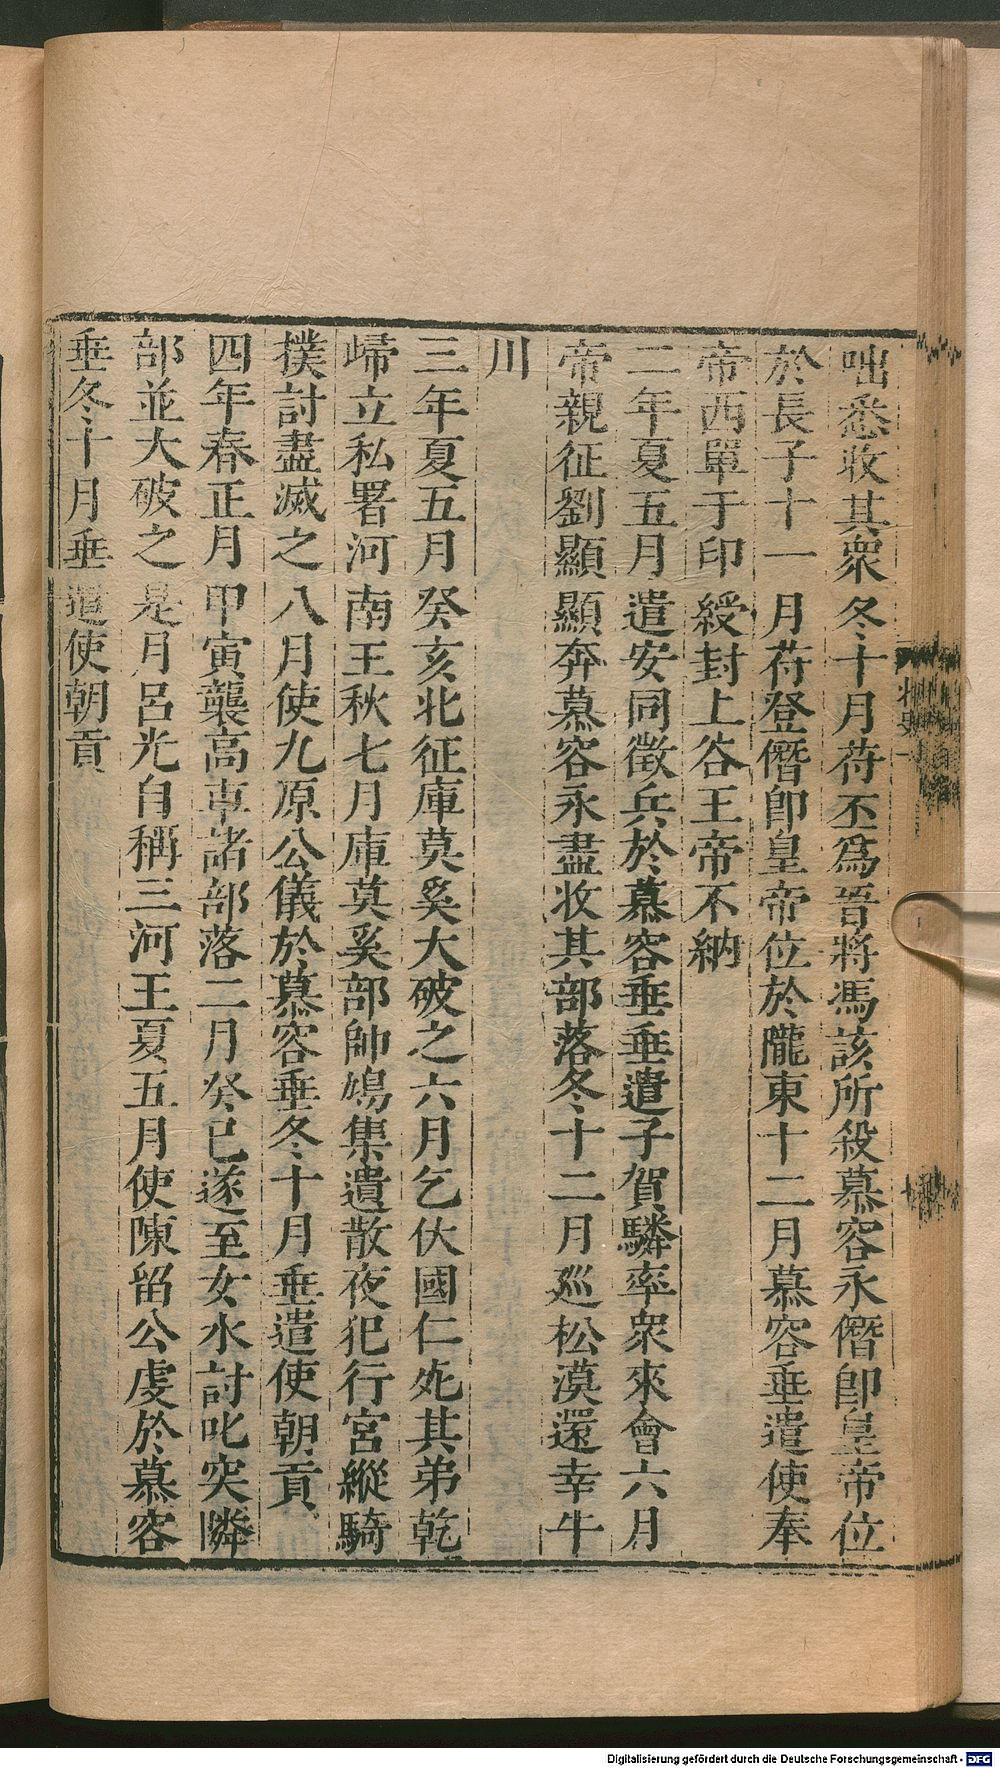 咄悉收其衆冬十月苻丕爲晉將馮該所殺慕容永僭卽皇帝位
於長子十一月苻登僭卽皇帝位於隴東十二月慕容垂遣使奉
帝西單于印綬封上谷王帝不納
二年夏五月遣安同徵兵於慕容垂垂遣子賀驎率衆來會六月
帝親征劉顯顯奔慕容永盡收其部落冬十二月廵松漠還幸牛
川
三年夏五月癸亥北征庫莫奚大破之六月乞伏國仁死其弟乾
歸立私署河南王秋七月庫莫奚部帥鳩集遺散夜犯行宮縱騎
撲討盡滅之八月使九原公儀於慕容垂冬十月垂遣使朝貢
四年春正月甲寅襲高車諸部落二月癸巳遂至女水討叱突隣
部並大破之是月呂光自稱三河王夏五月使陳留公虔於慕容
垂冬十月垂遣使朝貢
北史一
Digitalisierung gefördert durch die Deutsche Forschungsgemeinschaft - DFG